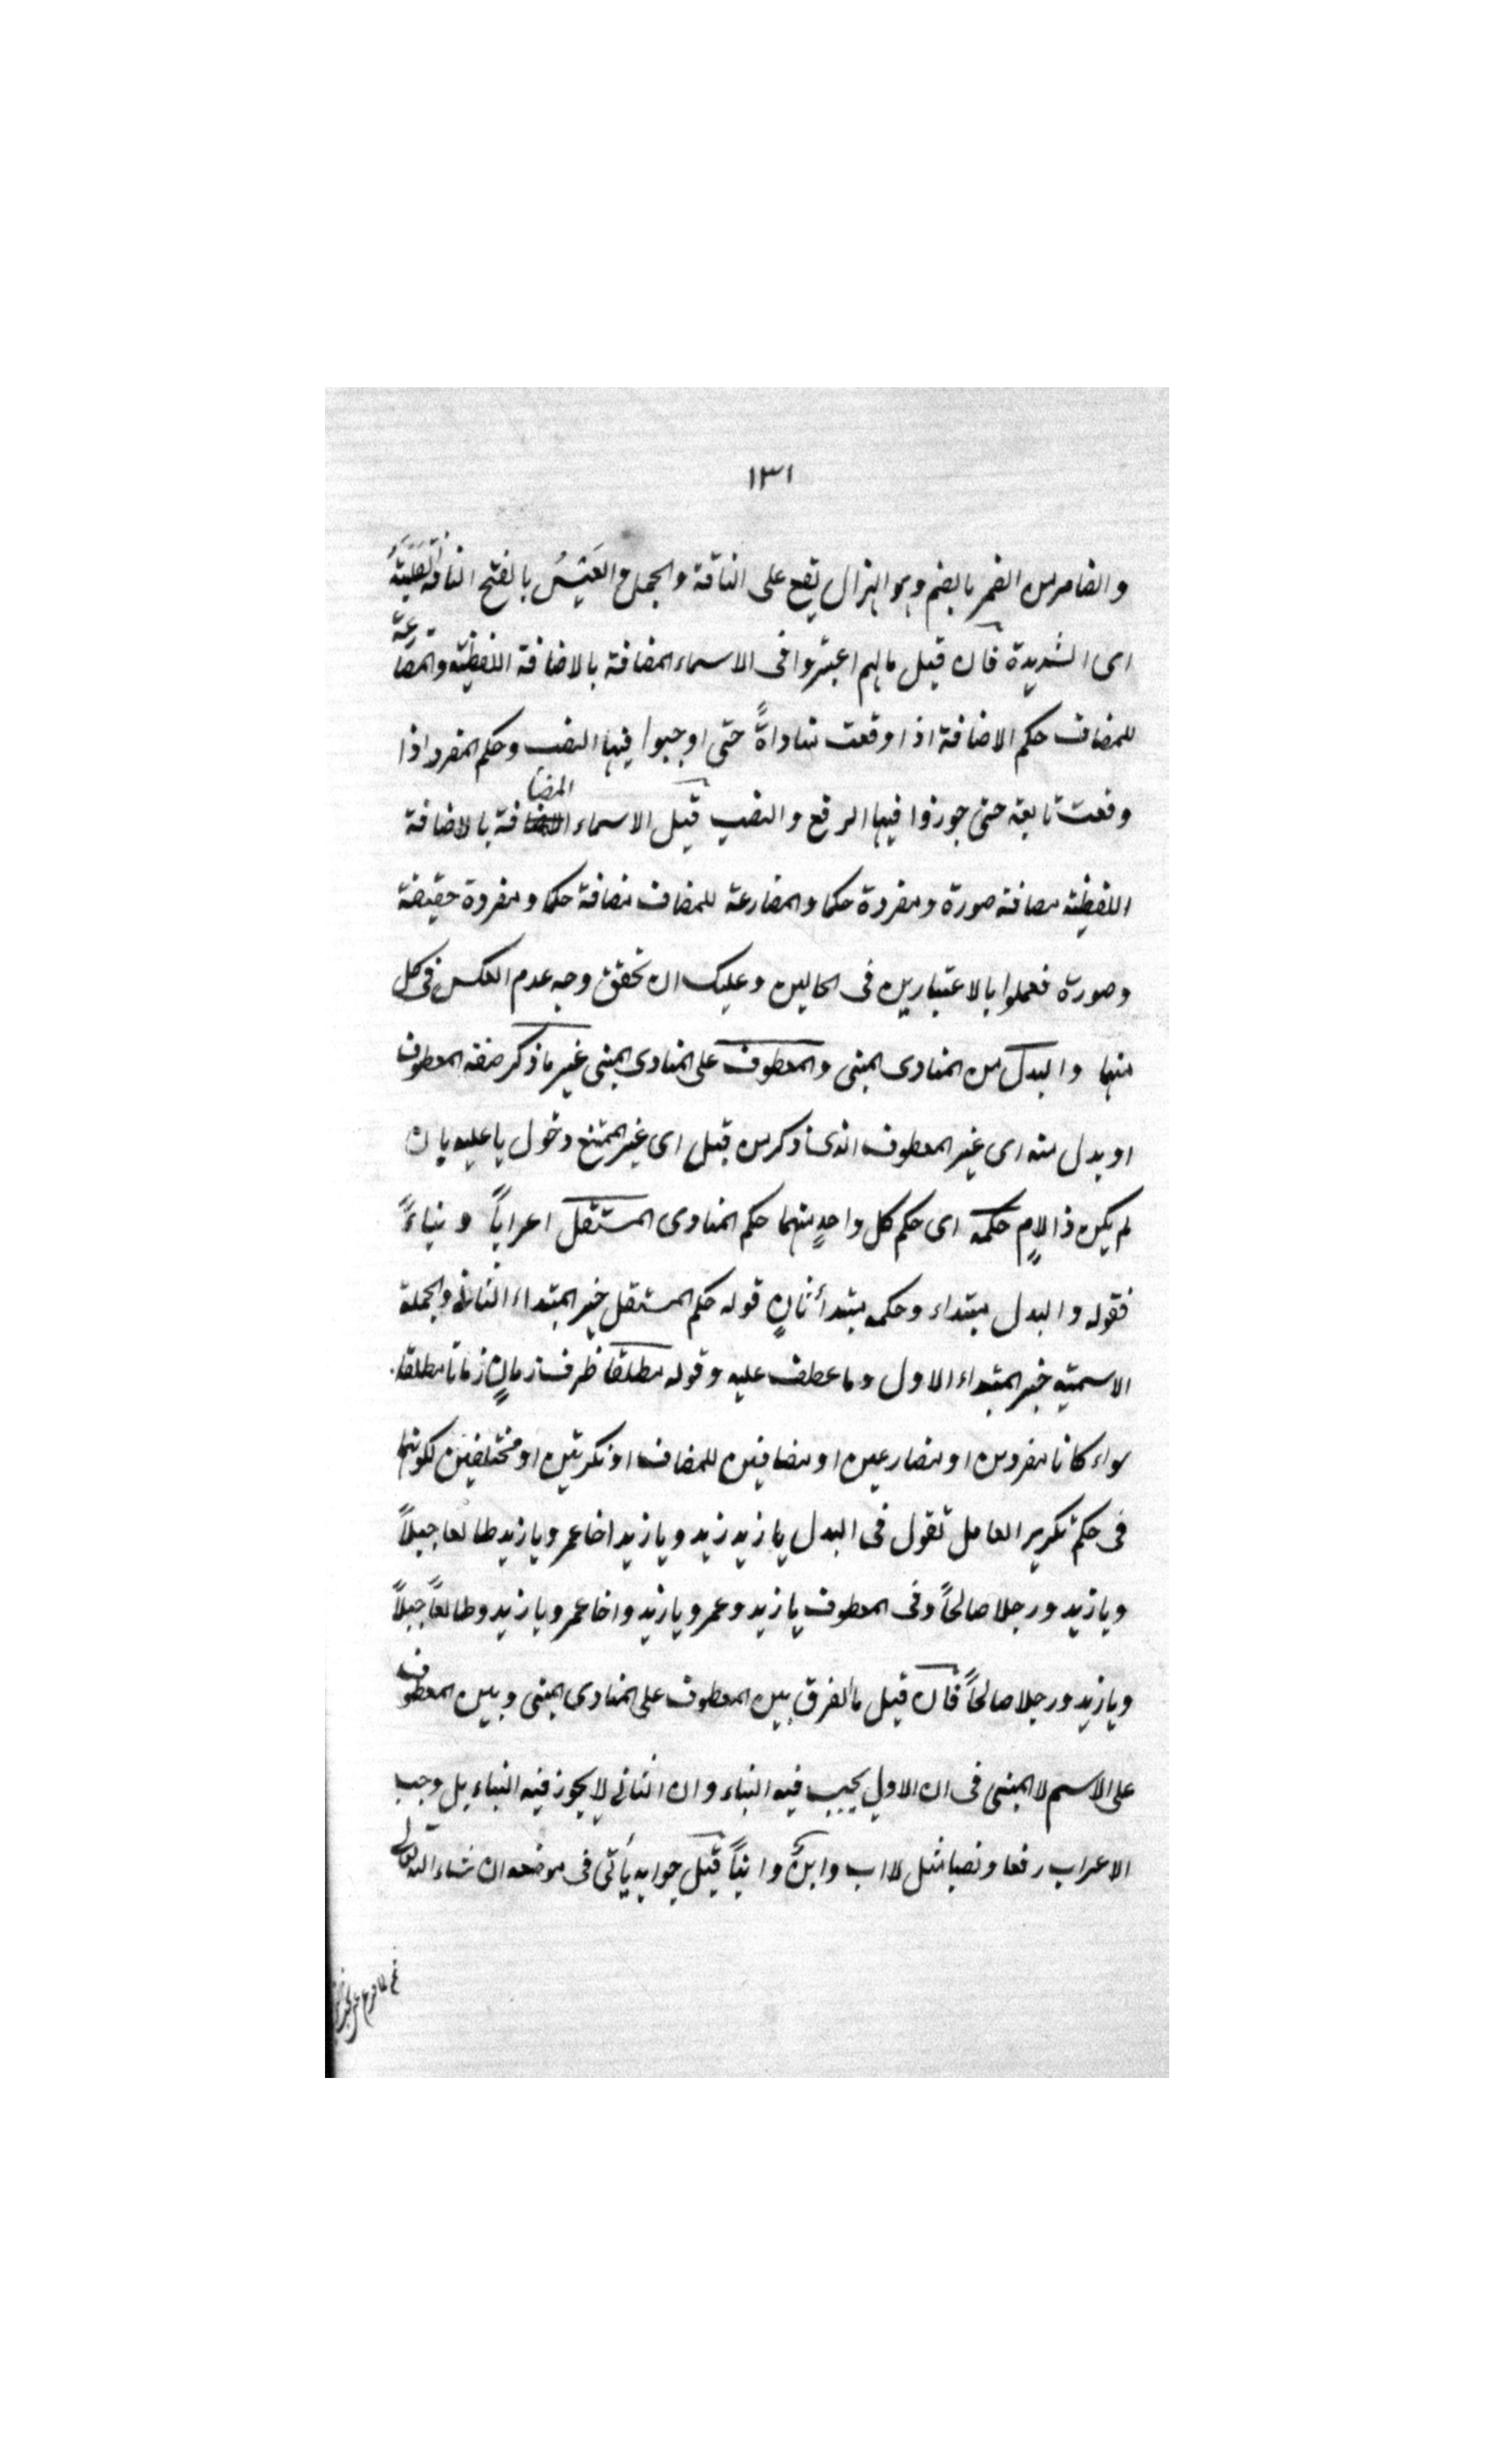 ١٣١
والضامر من الضمر بالضم وهو الهزال يقع على الناقة والجمل والعَيْسُ بالفتح الناقة الصلبة
اى الشديدة فان قيل مالهم اعتبروا فى الاسماء المضافة بالاضافة اللفظية والمضارعة
للمضاف حكم الاضافة اذا وقعت مناداةً حتى اوجبوا فيها النصب وحكم المفرد اذا
وقعت تابعة حتى جوزوا فيها الرفع والنصب قيل الاسماء المضافة بالاضافة
اللفظية مضافة صورة ومفردة حكما والمضارعة للمضاف مضافة حكما ومفردة حقيقة
وصورة فعملوا بالاعتبارين فى الحالين وعليك ان تحقق وجه عدم العكس فى كل
منها والبدل من المنادى المبنى والمعطوف على المنادى المبنى غير ما ذكر صفة المعطوف
او بدل منه اى غير المعطوف الذى ذكر من قبل اى غير الممتنع دخول يا عليه بان
لم يكن ذا لامٍ حكمه اى حكم كل واحدٍ منهما حكم المنادى المستقل اعراباً وبناءً
فقوله والبدل مبتداء وحكمه مبتدأ ثانٍ قوله حكم المستقل خبر المبتداء الثانى والجملة
الاسمية خبر المبتداء الاول وما عطف عليه وقوله مطلقا ظرف زمانٍ زمانا مطلقا
سواء كانا مفردين او مضارعين او مضافين للمضاف او نكرتين او مختلفين لكونهما
فى حكم تكرير العامل تقول فى البدل يا زيد زيد ويا زيد اخا عمر ويا زيد طالعا جبلاً
ويا زيد ورجلا صالحاً وفى المعطوف يا زيد وعمر ويا زيد واخا عمر ويا زيد وطالعاً جبلاً
ويا زيد ورجلا صالحاً فان قيل ما الفرق بين المعطوف على المنادى المبنى وبين المعطوف
على الاسم لا المبنى فى ان الاول يجب فيه البناء وان الثانى لا يجوز فيه البناء بل وجب
الاعراب رفعا ونصبا مثل لا اب وابنٌ وابناً قيل جوابه يأتى فى موضعه ان شاء الله تعالى